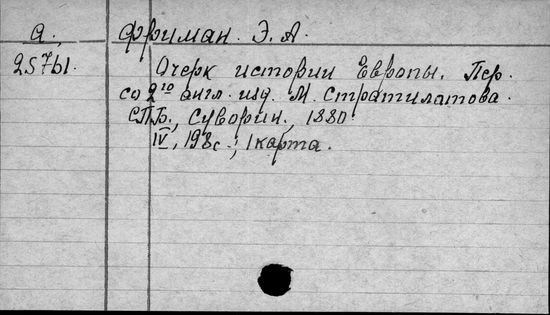 А. Фриман. Э. А.
25761. Очерк истории Европы. Пер.
со 2го англ. изд. М. Стратилатова.
СПБ., Суворин, 1880
IV, 198с.; 1 карта.